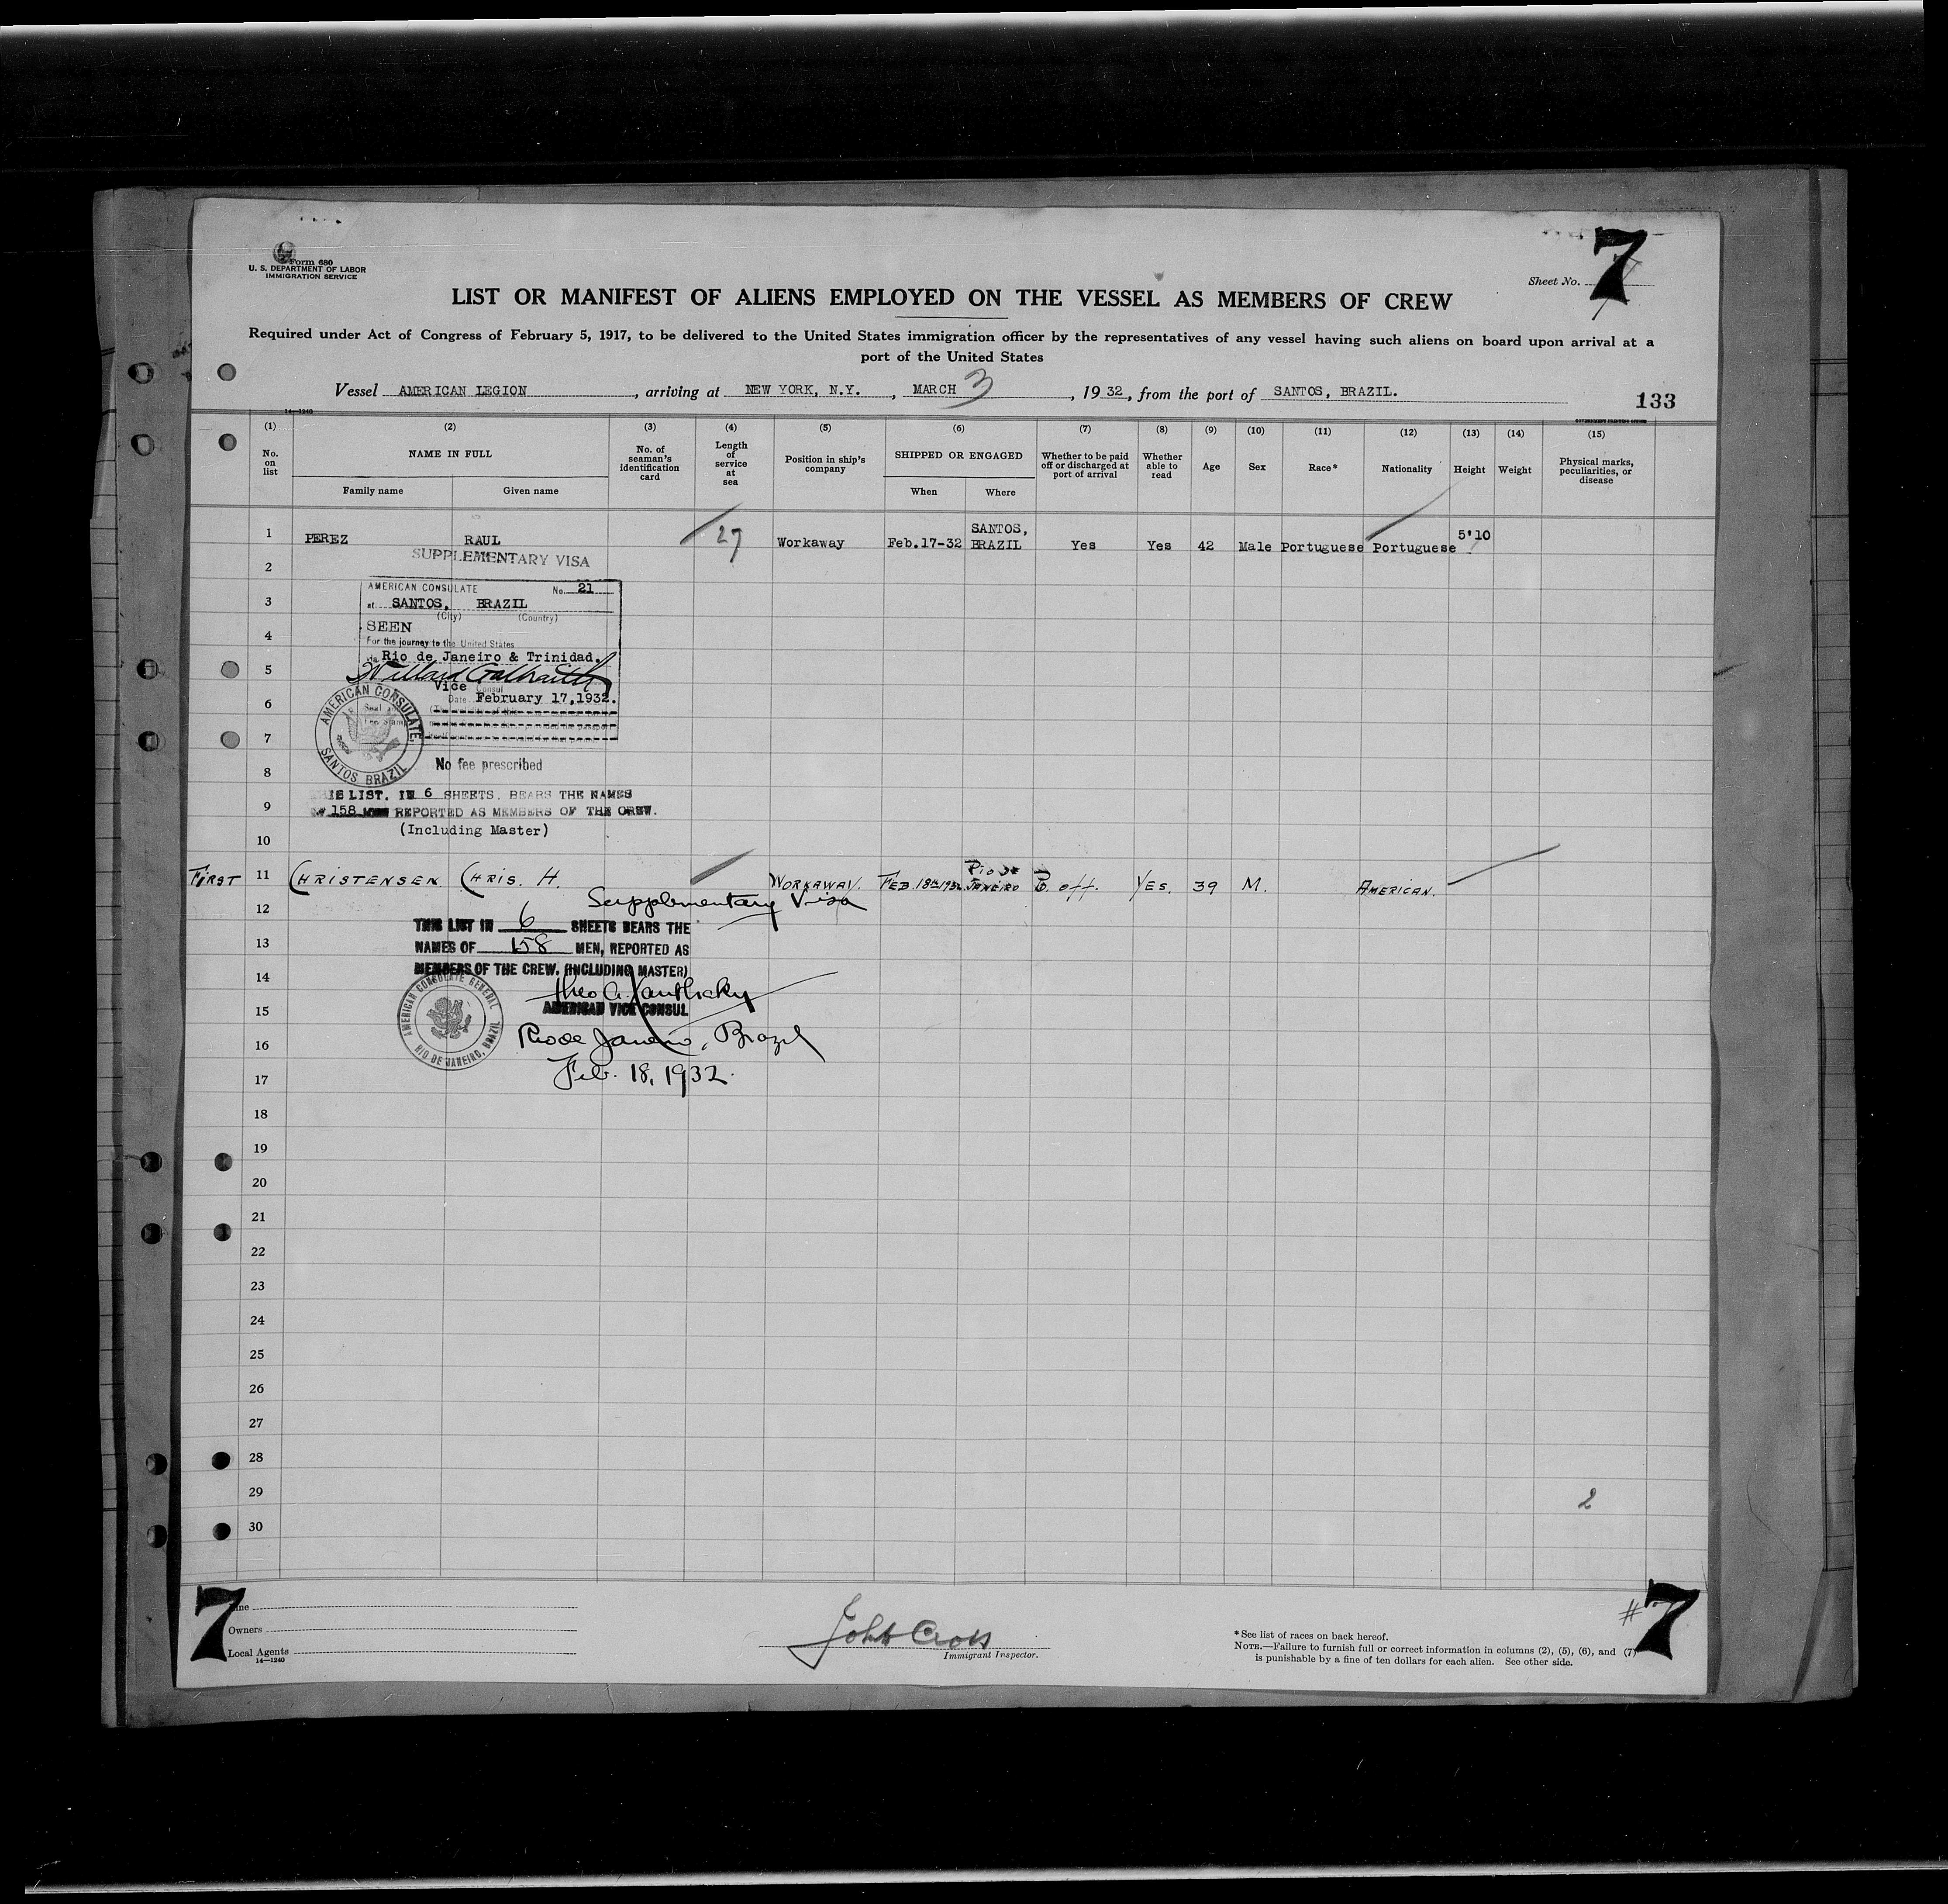 Form 680
U. S. DEPARTMENT OF LABOR
IMMIGRATION SERVICE
Sheet No. 7
LIST OR MANIFEST OF ALIENS EMPLOYED ON THE VESSEL AS MEMBERS OF CREW
Required under Act of Congress of February 5, 1917, to be delivered to the United States immigration officer by the representatives of any vessel having such aliens on board upon arrival at a
port of the United States
Vessel AMERICAN LEGION, arriving at NEW YORK, N.Y., MARCH 3, 1932, from the port of SANTOS, BRAZIL.
133
14—1240
GOVERNMENT PRINTING OFFICE
(1) (2) (3) (4) (5) (6) (7) (8) (9) (10) (11) (12) (13) (14) (15)
No. on list
NAME IN FULL
Family name Given name
No. of seaman's identification card
Length of service at sea
Position in ship's company
SHIPPED OR ENGAGED
When Where
Whether to be paid off or discharged at port of arrival
Whether able to read
Age
Sex
Race*
Nationality
Height
Weight
Physical marks, peculiarities, or disease
1 PEREZ RAUL 27 Workaway Feb.17-32 SANTOS, BRAZIL Yes Yes 42 Male Portuguese Portuguese 5'10
SUPPLEMENTARY VISA
2
AMERICAN CONSULATE No. 21
3
at SANTOS, BRAZIL
(City) (Country)
4
SEEN
For the journey to the United States
5
via Rio de Janeiro & Trinidad.
Willard Galbraith
Vice Consul
6
Date February 17,1932.
AMERICAN CONSULATE, SANTOS BRAZIL
7
8
No fee prescribed
LIST. IN 6 SHEETS. BEARS THE NAMES
9
158 REPORTED AS MEMBERS OF THE CREW.
(Including Master)
10
FIRST 11 CHRISTENSEN CHRIS. H. WORKAWAY. FEB. 18th 1932 RIO DE JANEIRO P. off. YES. 39 M. AMERICAN.
12
Supplementary Visa
THIS LIST IN 6 SHEETS BEARS THE
13
NAMES OF 158 MEN, REPORTED AS
MEMBERS OF THE CREW. (INCLUDING MASTER)
14
Theo A. Xanthaky
15
AMERICAN VICE CONSUL
AMERICAN CONSULATE GENERAL RIO DE JANEIRO, BRAZIL
16
Rio de Janeiro, Brazil
17
Feb. 18, 1932.
18
19
20
21
22
23
24
25
26
27
28
29 2
30
7
Owners
Local Agents
14—1240
John Cross
Immigrant Inspector.
* See list of races on back hereof.
NOTE.—Failure to furnish full or correct information in columns (2), (5), (6), and (7)
is punishable by a fine of ten dollars for each alien. See other side.
# 7